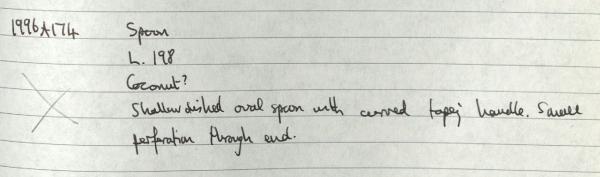 1996A174 Spoon
L. 198
Coconut?
Shallow dished oval spoon with curved handle. Small
perforation through end.